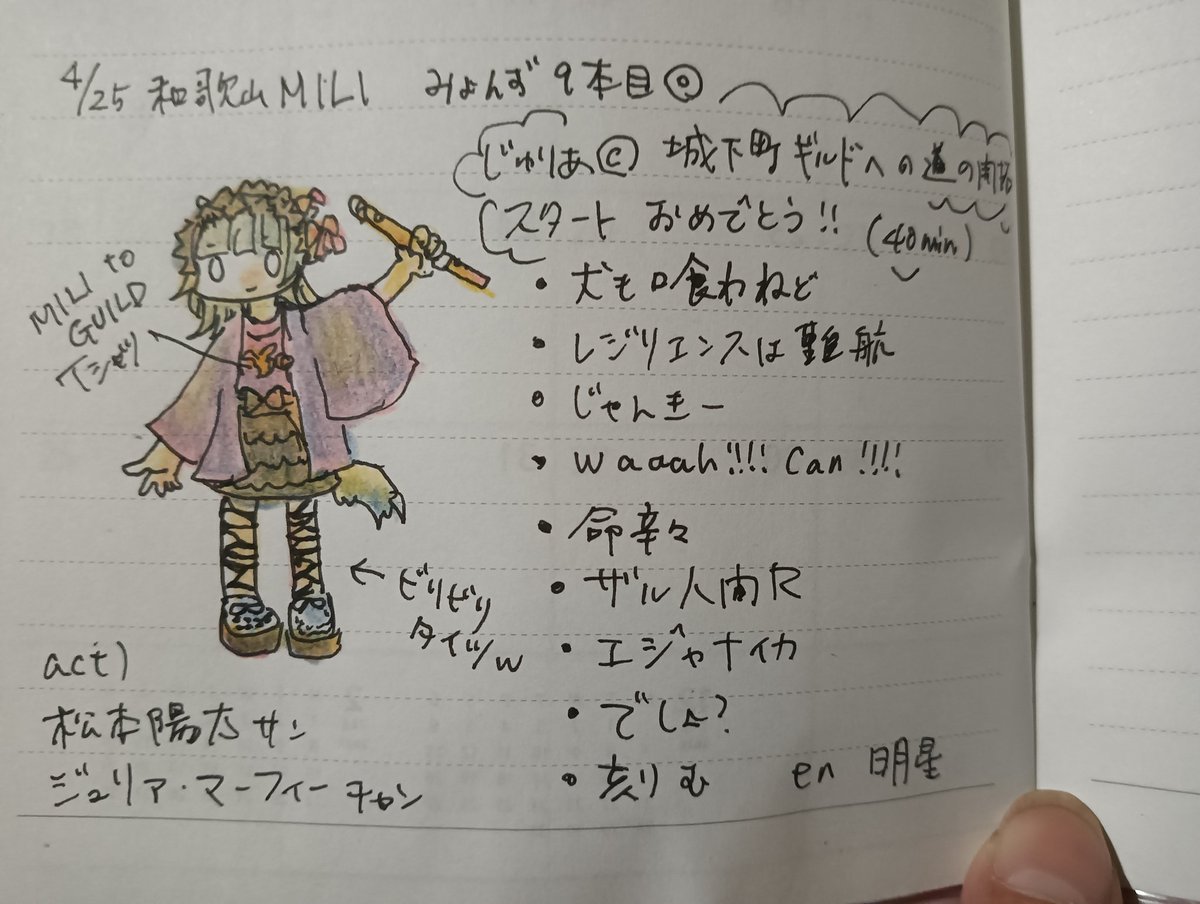 4/25 和歌山MILI みょんず9本目◎
じゅりあ© 城下町ギルドへの道の開拓
スタート おめでとう!! (40min)
MILI to
GUILD
Tシャツ
・犬も口喰わねど
・レジリエンスは難航
・じゃんきー
・waaah!!!! Can!!!!
・命辛々
・ザル人間R
・エジャナイカ
・でしょ?
・刻りむ en 明星
← ビリビリ
タイツw
act)
松本陽太サン
ジュリア・マーフィーチャン